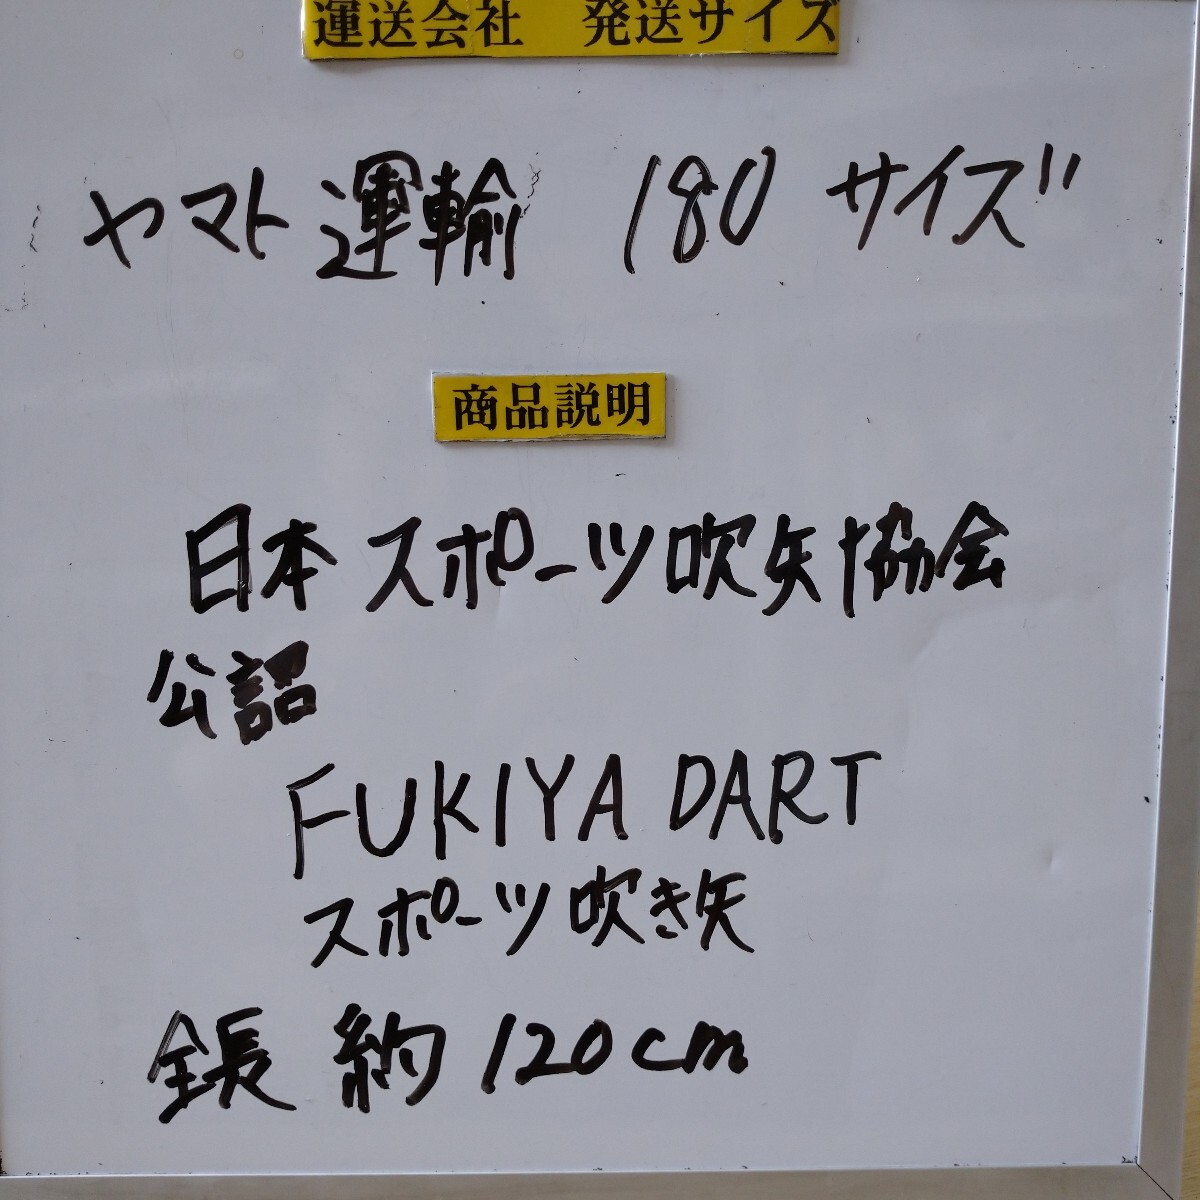 運送会社　発送サイズ
ヤマト運輸　180 サイズ
商品説明
日本スポーツ吹矢協会
公認
FUKIYA DART
スポーツ吹き矢
全長 約 120cm